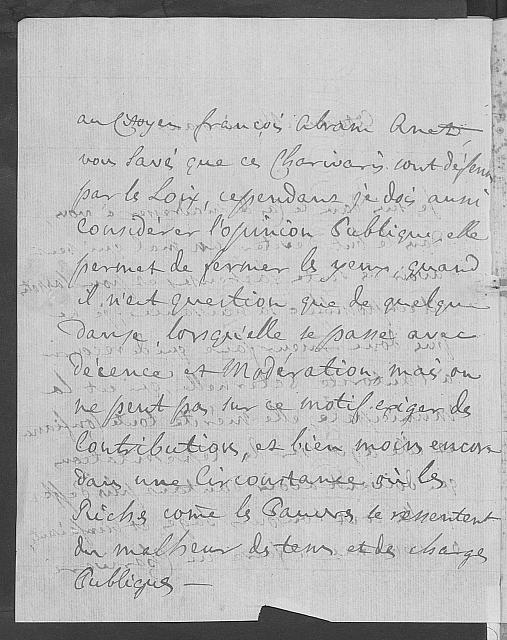 au Citoyen françois abram Anet
vous Savé que ces Charivaris sont défens
par les Loix, cependans je dois aussi
Considérer l'opinion Publique, elle
permet de fermer les yeux, quand
il n'est question que de quelque
danse, lorsqu'elle se passe avec
décence et Modération mais on
ne peut pas sur ce motif exiger des
Contributions, et bien moins encore
dans une Circonstance où les
Riches come les Pauvres se ressentent
du malheur des tems et des charges
Publiques —